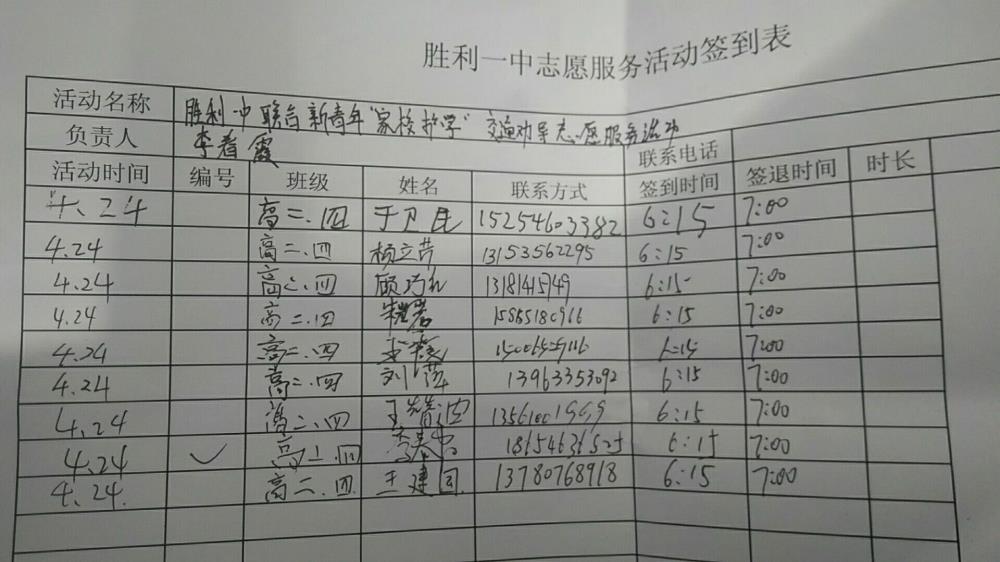 胜利一中志愿服务活动签到表
活动名称 胜利一中联合新青年"家校护学"交通劝导志愿服务活动
负责人 李春霞 联系电话
活动时间 编号 班级 姓名 联系方式 签到时间 签退时间 时长
4.24 高二.四 于卫民 15254603382 6:15 7:00
4.24 高二.四 杨立芹 13153562295 6:15 7:00
4.24 高二.四 顾巧礼 6:15 7:00
4.24 高二.四 6:15 7:00
4.24 高二.四 6:15 7:00
4.24 高二.四 刘萍 13963353092 6:15 7:00
4.24 高二.四 6:15 7:00
4.24 ✓ 高二.四 6:15 7:00
4.24. 高二.四 王建国 13780768918 6:15 7:00